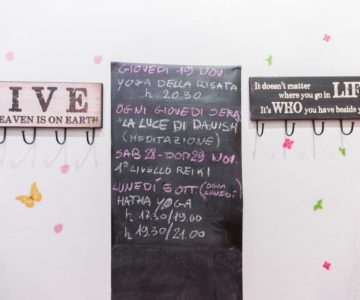 IVE
HEAVEN IS ON EARTH
GIOVEDI 19 NOV.
YOGA DELLA RISATA
h 20.30
OGNI GIOVEDI SERA
"LA LUCE DI DANISH
(MEDITAZIONE)
SAB 28-DOM 29 NOV.
1° LIVELLO REIKI
LUNEDÍ 5 OTT (OGNI
LUNEDÍ)
HATHA YOGA
h 17.30/19.00
h 19.30/21.00
It doesn't matter
where you go in LIF
It's WHO you have beside y